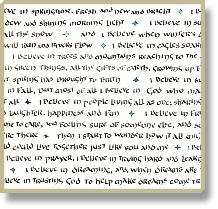 IN SPRINGTIME, FRESH AND NEW AND BRIGHT ✦ I BELIEVE
DEW AND SHINING MORNING LIGHT ✦ I BELIEVE IN SU
ALL THE SNOW ✦ AND I BELIEVE IN WINTER'S
I BELIEVE WHEN EAGLES SOAR
WILL RUN AND RIVERS FLOW ✦ I BELIEVE IN
I BELIEVE IN TREES AND MOUNTAINS REACHING TO THE
IN GREEN THINGS, ALL THE GIFTS OF EARTH, GROWING UP F
SPRING HAS BROUGHT TO BIRTH ✦ I BELIEVE IN
IN FALL, BUT MOST OF ALL I BELIEVE IN GOD WHO MA
✦ I BELIEVE IN PEOPLE LIVING ALL AS ONE, SHARING
LAUGHTER, HAPPINESS AND FUN ✦ I BELIEVE IN
TO CARE, FEELING SURE OF SOMEONE ELSE, AND
RE THERE ✦ THEN I START TO WONDER HOW IT ALL
LD COULD LIVE TOGETHER JUST LIKE YOU AND ME ✦ I
BELIEVE IN PRAYER, I BELIEVE IN TRYING HARD AND LEARN
✦ I BELIEVE IN DREAMING, AND WHEN DREAMS ARE
IEVE IN TRUSTING GOD TO HELP MAKE DREAMS COME TR